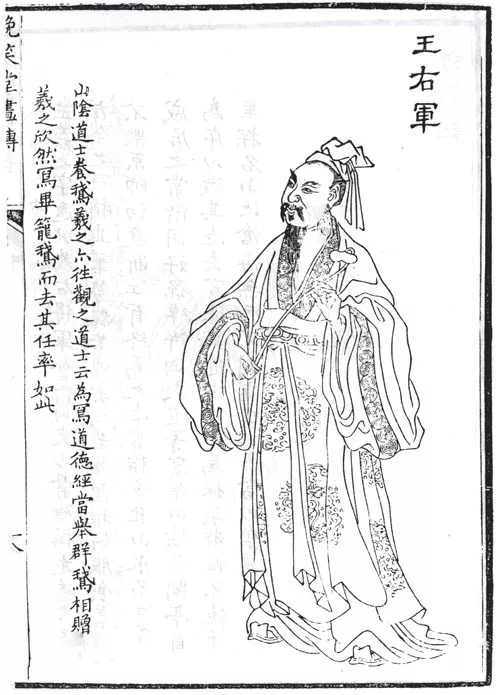 王右軍
山陰道士養鵝羲之亦往觀之道士云為寫道德經當舉群鵝相贈
羲之欣然寫畢籠鵝而去其任率如此
晚笑堂畫傳
八